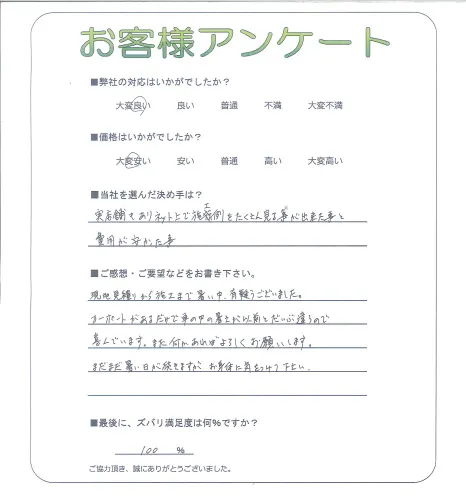 お客様アンケート
■弊社の対応はいかがでしたか？
大変良い 良い 普通 不満 大変不満
■価格はいかがでしたか？
大変安い 安い 普通 高い 大変高い
■当社を選んだ決め手は？
実店舗もありネット上で施工例をたくさん見る事が出来た事と
費用が安かった事
■ご感想・ご要望などをお書き下さい。
現地見積りから施工まで暑い中、有難うございました。
カーポートがあるだけで車の中の暑さが以前とだいぶ違うので
喜んでいます。また何かあれば よろしく お願いします。
まだまだ暑い日が続きますが お身体に気をつけて下さい。
■最後に、ズバリ満足度は何％ですか？
100 ％
ご協力頂き、誠にありがとうございました。